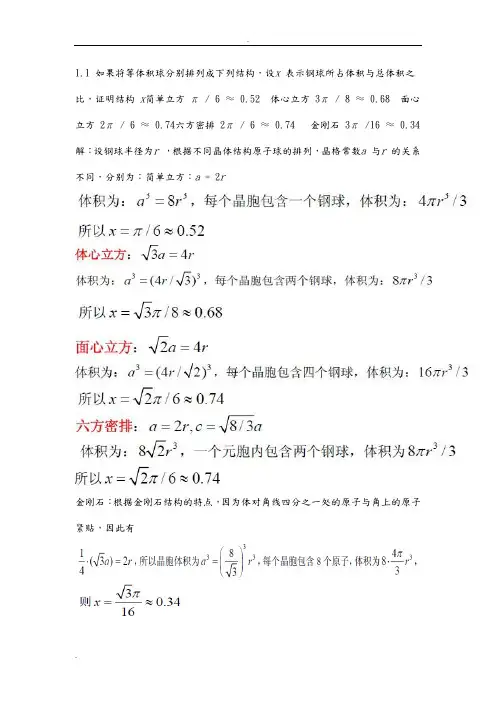 1.1 如果将等体积球分别排列成下列结构，设x 表示钢球所占体积与总体积之
比，证明结构 x简单立方 π / 6 ≈ 0.52 体心立方 3π / 8 ≈ 0.68 面心
立方 2π / 6 ≈ 0.74六方密排 2π / 6 ≈ 0.74 金刚石 3π /16 ≈ 0.34
解：设钢球半径为r ，根据不同晶体结构原子球的排列，晶格常数a 与r 的关系
不同，分别为：简单立方：a = 2r
体积为: a³ = 8r³，每个晶胞包含一个钢球，体积为: 4πr³/3
所以 x = π/6 ≈ 0.52
体心立方: √3a = 4r
体积为: a³ = (4r/√3)³，每个晶胞包含两个钢球，体积为: 8πr³/3
所以 x = √3π/8 ≈ 0.68
面心立方: √2a = 4r
体积为: a³ = (4r/√2)³，每个晶胞包含四个钢球，体积为: 16πr³/3
所以 x = √2π/6 ≈ 0.74
六方密排: a = 2r, c = √8/3a
体积为: 8√2r³，一个元胞内包含两个钢球，体积为 8πr³/3
所以 x = √2π/6 ≈ 0.74
金刚石：根据金刚石结构的特点，因为体对角线四分之一处的原子与角上的原子
紧贴，因此有
1/4·(√3a) = 2r，所以晶胞体积为 a³ = (8/√3)³ r³，每个晶胞包含8个原子，体积为 8·4π/3 r³，
则 x = √3π/16 ≈ 0.34